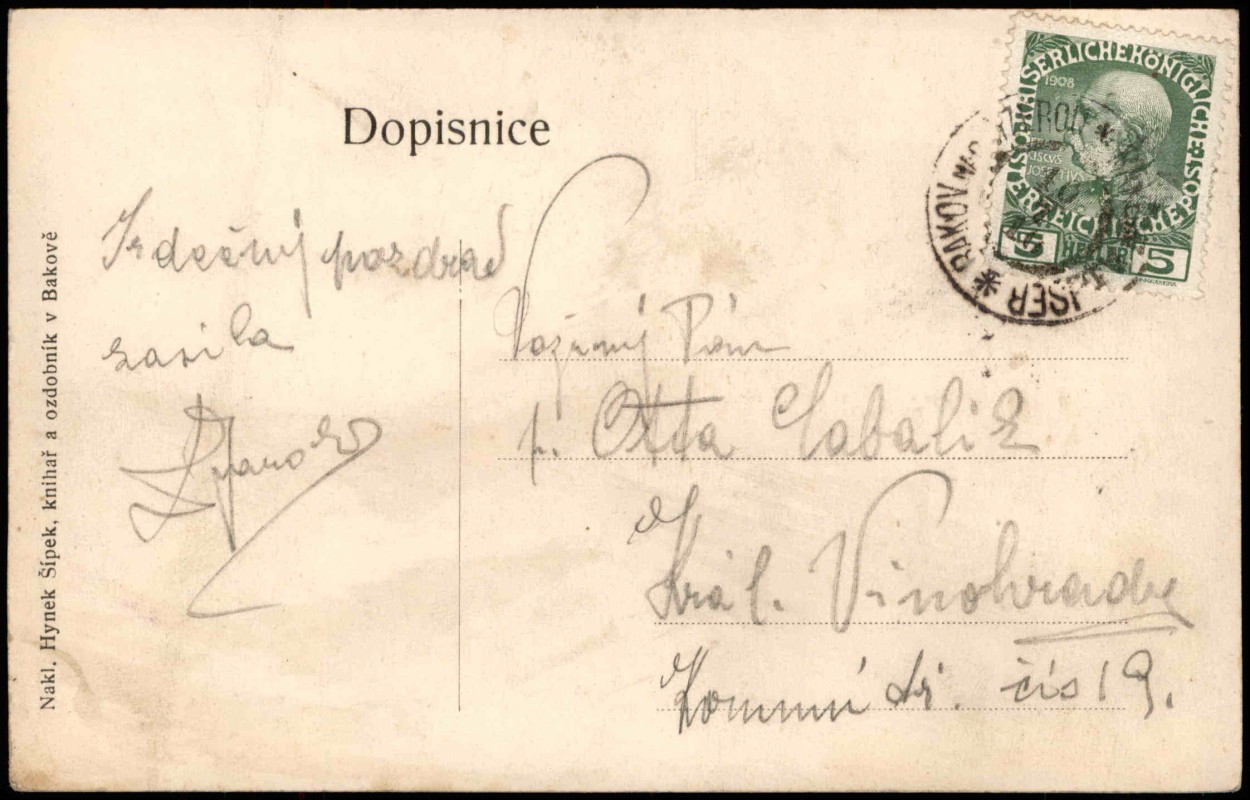 Dopisnice
Srdečný pozdrav
zasílá
Dvorak
Vážený Pán
p. Otta Sabalik
Král. Vinohrady
Kommú tř. čís 19.
Nakl. Hynek Šípek, knihař a ozdobník v Bakově
KAISERLICHE KÖNIGLICHE ÖSTERREICHISCHE POST
1908
5 HELLER 5
BAKOV
ISER